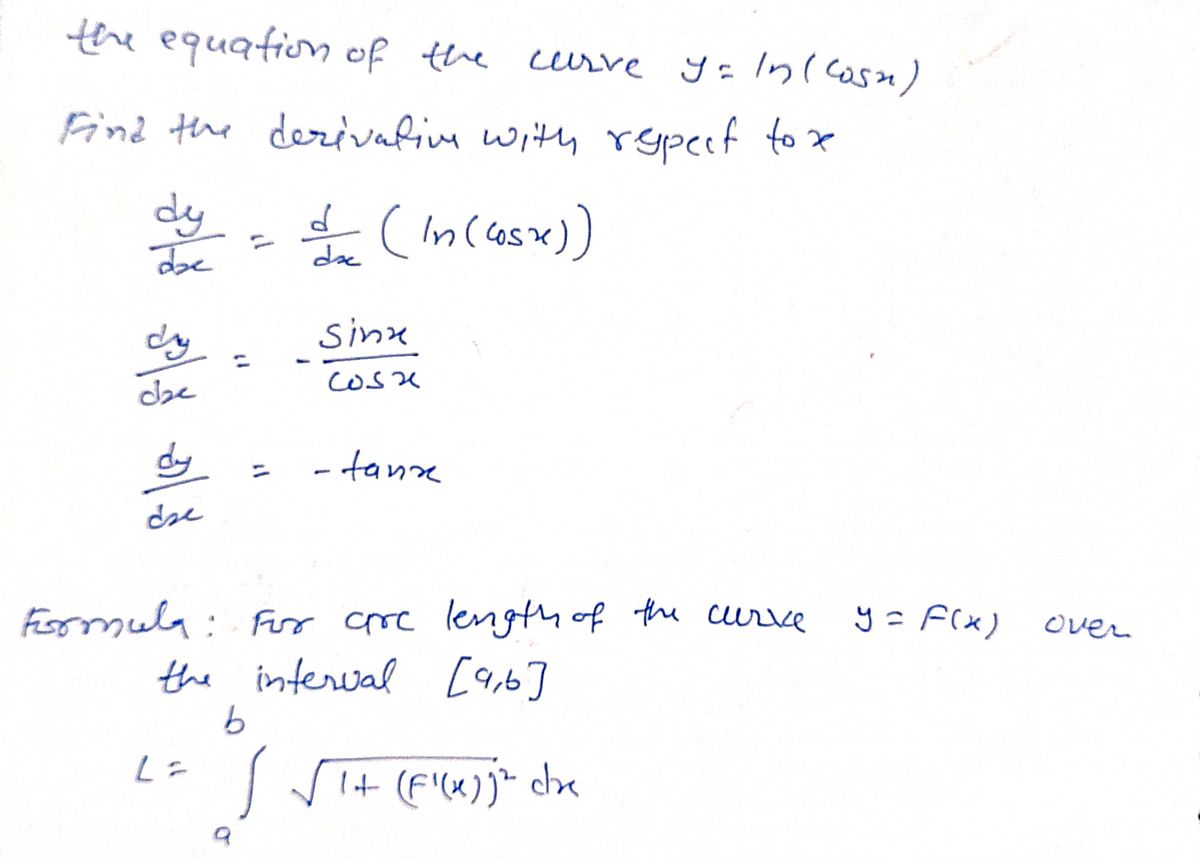 the equation of the curve y = ln(cosx)
Find the derivative with respect to x
dy/dx = d/dx (ln(cosx))
dy/dx = - sinx/cosx
dy/dx = - tanx
Formula: For arc length of the curve y = F(x) over
the interval [a,b]
L = ∫_a^b √(1+(F'(x))²) dx